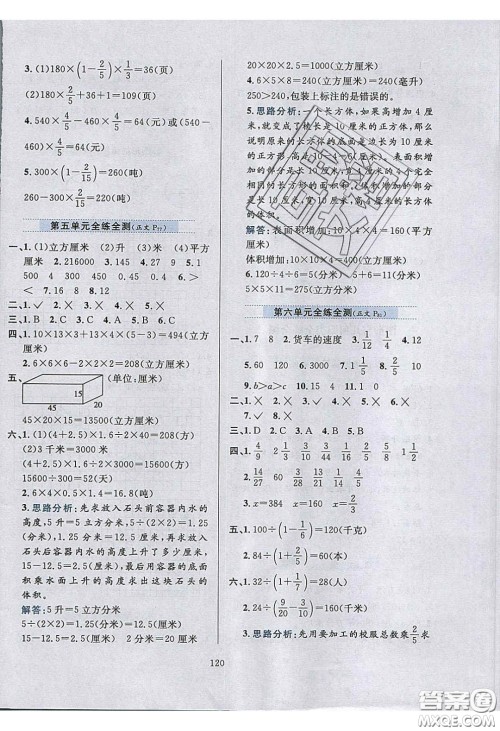 3.(1)180×(1-2/5)×1/3=36(页)
(2)180×2/5+36+1=109(页)
5.540-460×4/5-460=64(元)或(540-
460)×4/5=64(元)
5.300-300×2/15=260(吨)
260-300×2/15=220(吨)
第五单元全练全测(正文P77)
一、1.(1)立方厘米 (2)升 (3)米 (4)平方
厘米 2.216000 3.48 4.18 5.30
15 450 450 6.27 0.027
30 6÷ 7.168 8.125 9.120
二、1.✓ 2.✕ 3.✕ 4.✕ 5.✕
三、1.C 2.A 3.B 4.C 5.C
四、1.10×13×3+13×4×(5-4)=494(立方
厘米)
2.6×6×6-2×2×2=208(立方厘米)
五、 (单位:厘米)
15
45 20
45×20×15=13500(立方厘米)
六、1.(1)(4+2.5)×1.6÷2×40=208(方)
(2)3千米=3000米
(4+2.5)×1.6÷2×3000=15600(方)
15600÷40÷10=39(天)
2.6×4×2×½×0.7=16.8(吨)
3.思路分析:先求放入石头前容器内水的
高度,5升=5立方分米,5÷(2×2)=1.25
(分米)=12.5(厘米),再求放入石头
后容器内水的高度上升了多少厘米,
15-12.5=2.5(厘米),用容器的底面
面积乘水面上升的高度求出这块石头
的体积。
解答:5升=5立方分米
5÷(2×2)=1.25(分米)=12.5(厘米)
15-12.5=2.5(厘米) 2分米=20厘米
20×20×2.5=1000(立方厘米)
4.6×5×8=240(立方厘米)=240(毫升)
250>240,包装上标注的是错误的。
5.思路分析:一个长方体,如果高增加4厘
米,就变成了棱长是10厘米的正方体,那么
说明原来的长方体的底面是边长为10厘米
的正方形,高增加4厘米,表面积增加
的部分是4个长是10厘米,宽是4厘米的完
全相同的长方形的面积,体积增加
解答:表面积增加:10×4×4=160(平方厘米)
体积增加:10×10×4=400(立方厘米)
6.120÷4÷6=5(厘米)
5×5×11=275(立方厘米)
第六单元全练全测(正文P93)
一、1.7 8 2.货车的速度 3.1/12 1/24
5.60 120 6.5 7.5/6 8.1 2/5 10
9.b>a>c 10.44 11.0 1
二、1.✕ 2.✓ 3.✕ 4.✕ 5.✕
四、1.4/9 2 1/4 3/2 3/4 3/8 6/7
2.14/27 60 3/34 2/3
3.x=384 x=160 x=9/16
五、1.100÷(1-1/6)=120(千克)
2.84÷(1-1/3)=126(本)
六、1.32÷(1+1/7)=28(人)
2.24÷(9/20-3/10)=160(千米)
3.思路分析:先用要加工的校服总数乘2/5求
120
答案圈
MXQE.COM